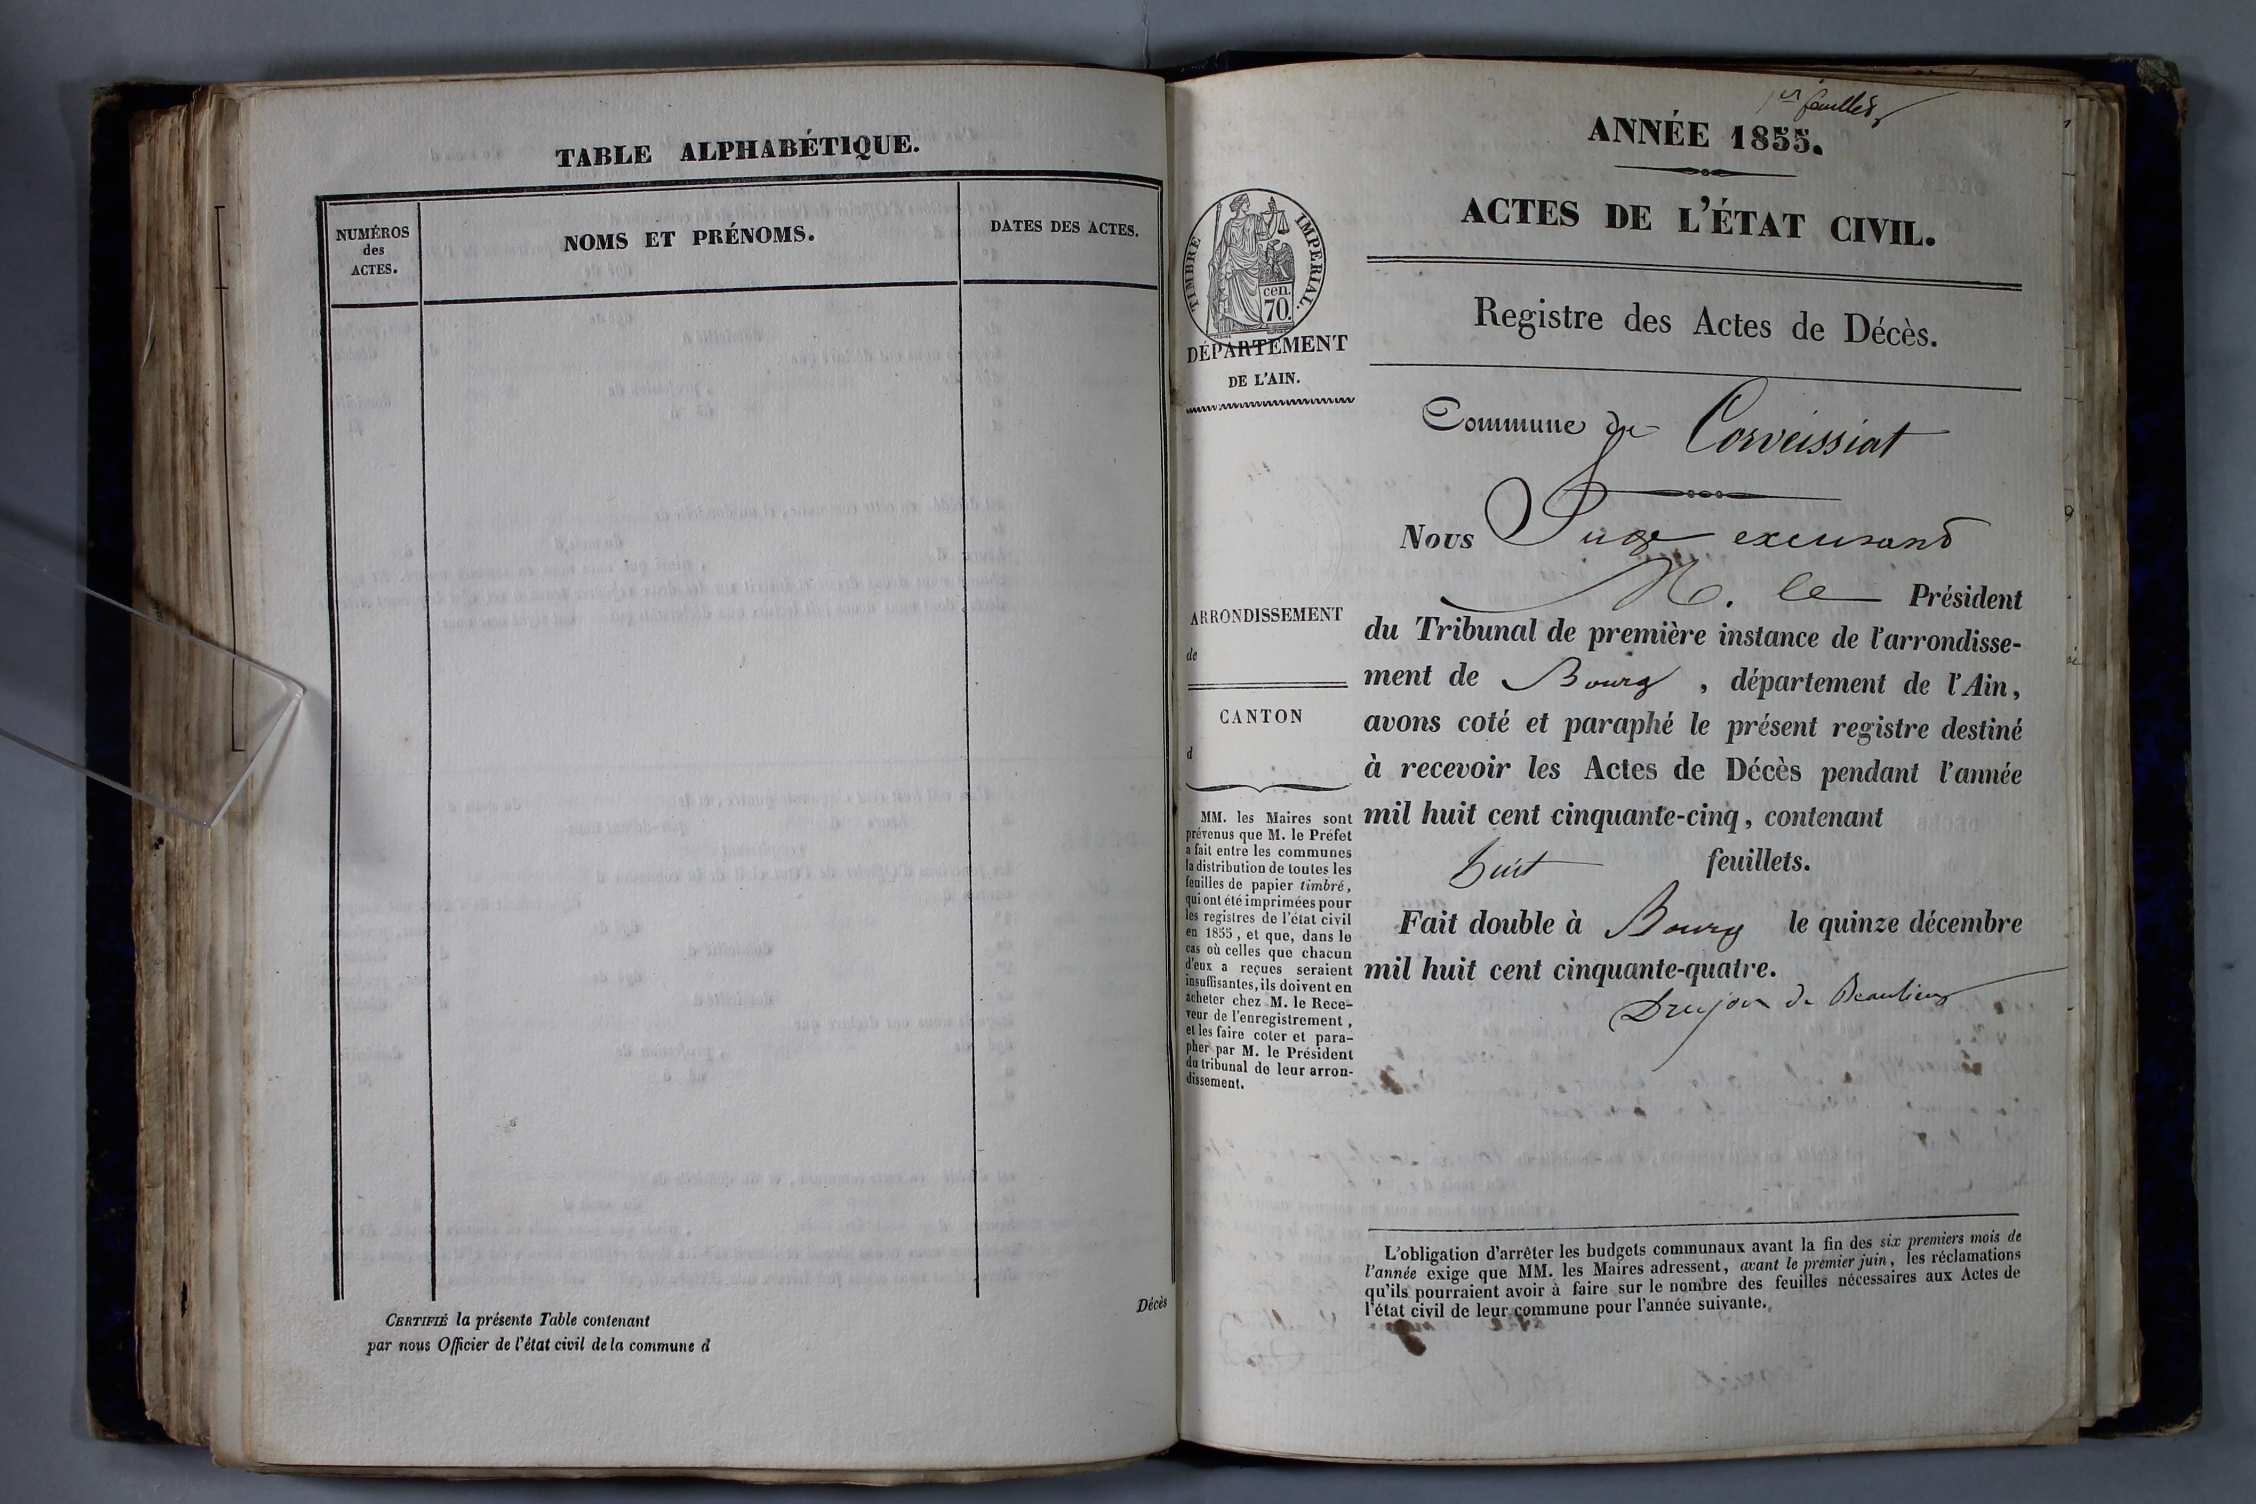 TABLE ALPHABÉTIQUE.
NUMÉROS
des
ACTES.
NOMS ET PRÉNOMS.
DATES DES ACTES.
CERTIFIÉ la présente Table contenant
par nous Officier de l'état civil de la commune d
Décès
1er feuillet
ANNÉE 1855.
ACTES DE L'ÉTAT CIVIL.
TIMBRE IMPERIAL.
cen.
70.
DÉPARTEMENT
DE L'AIN.
Registre des Actes de Décès.
Commune de Corveissiat
Nous Juge excusant
M. le Président
du Tribunal de première instance de l'arrondisse-
ment de Bourg, département de l'Ain,
avons coté et paraphé le présent registre destiné
à recevoir les Actes de Décès pendant l'année
mil huit cent cinquante-cinq, contenant
huit feuillets.
Fait double à Bourg le quinze décembre
mil huit cent cinquante-quatre.
Drujon de Beaulieu
ARRONDISSEMENT
de
CANTON
d
MM. les Maires sont
prévenus que M. le Préfet
a fait entre les communes
la distribution de toutes les
feuilles de papier timbré,
qui ont été imprimées pour
les registres de l'état civil
en 1855, et que, dans le
cas où celles que chacun
d'eux a reçues seraient
insuffisantes, ils doivent en
acheter chez M. le Rece-
veur de l'enregistrement,
et les faire coter et para-
pher par M. le Président
du tribunal de leur arron-
dissement.
L'obligation d'arrêter les budgets communaux avant la fin des six premiers mois de
l'année exige que MM. les Maires adressent, avant le premier juin, les réclamations
qu'ils pourraient avoir à faire sur le nombre des feuilles nécessaires aux Actes de
l'état civil de leur commune pour l'année suivante.